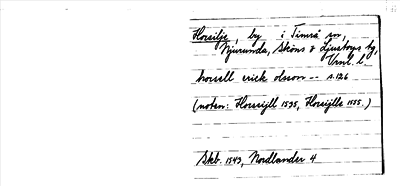 Hovsilje, by i Timrå sn,
Njurunda, Sköns & Ljustorps tg,
Vrnl. l.
horsell erick olsson -- s. 126
(noten: Horsijll 1535, Horsijlle 1555.)
Skb. 1543, Nordlander 4